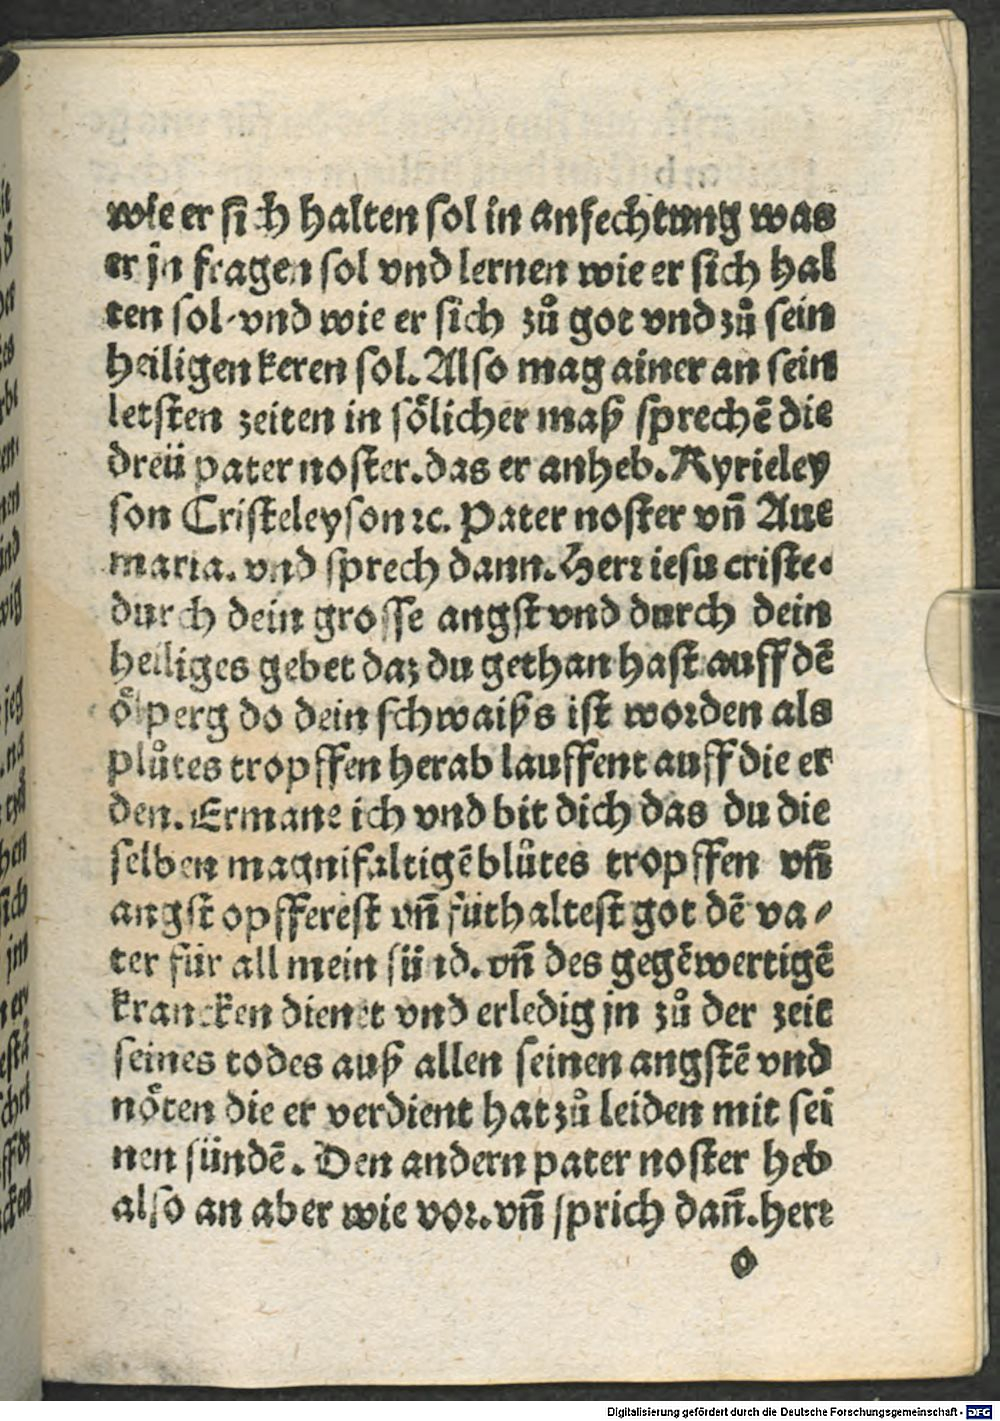 wie er sich halten sol in anfechtung was
er jn fragen sol vnd lernen wie er sich hal
ten sol·vnd wie er sich zů got vnd zů sein
heiligen keren sol. Also mag ainer an sein
letsten zeiten in sölicher maß sprechē die
dreü pater noster. das er anheb. Kyrieley
son Cristeleyson ꝛc. Pater noster vn̄ Aue
maria. vnd sprech dann. Herꝛ iesu criste.
durch dein grosse angst vnd durch dein
heiliges gebet daz du gethan hast auff dē
ölperg do dein schwaißs ist woꝛden als
plůtes tropffen herab lauffent auff die er
den. Ermane ich vnd bit dich das du die
selben magnifaltigē blůtes tropffen vn̄
angst opfferest vn̄ fürhaltest got dē va⸗
ter für all mein sünd. vn̄ des gegēwertigē
krancken dienet vnd erledig jn zů der zeit
seines todes auß allen seinen angstē vnd
nöten die er verdient hat zů leiden mit sei
nen sündē. Den andern pater noster heb
also an aber wie voꝛ. vn̄ sprich dan̄. herꝛ
o
Digitalisierung gefördert durch die Deutsche Forschungsgemeinschaft - DFG